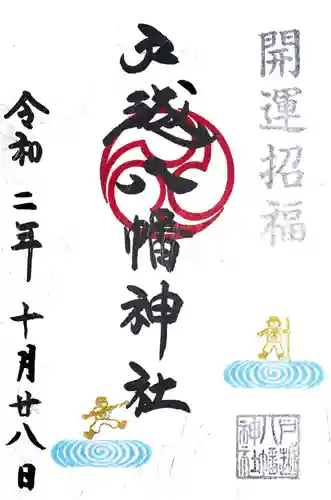 開運招福
戸越八幡神社
令和二年十月廿八日
戸越
八幡
神社